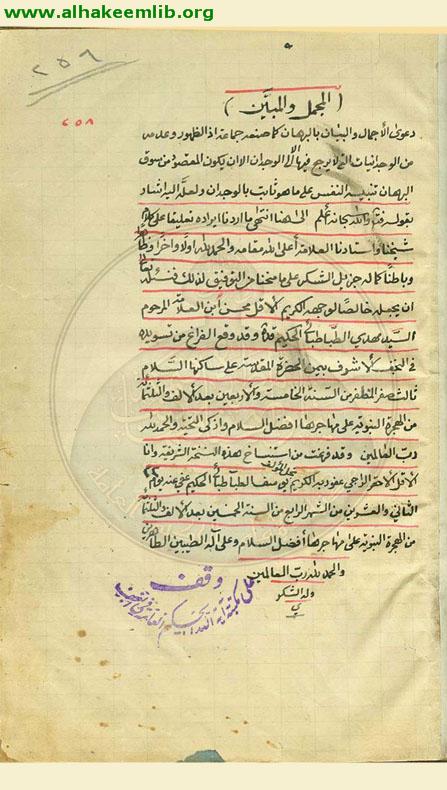 www.alhakeemlib.org
٢٥٦
٢٥٨
( المجمل والمبيَّن )
دعوى الاجمال والبيان بالبرهان كما صنعه جماعة اذ الظهور وعدمه
من الوجدانيات التي لا يرجع فيها الّا الى الوجدان الا ان يكون المقصود من سوق
البرهان تنبيه النفس على ما هو ثابت بالوجدان ولعله اليه اشار
بقوله فتأمل والله سبحانه أعلم الى هنا انتهى ما اردنا ايراده تعليقا على كلام
شيخنا واستادنا العلامة أعلى الله مقامه والحمد لله اولا واخرا وظاهرا
وباطنا كما له جزيل الشكر على ما منحنا من التوفيق لذلك فنسأله تعالى
ان يجعله خالصا لوجهه الكريم الاقل محسن ابن العلامة المرحوم
السيد مهدي الطباطبائي الحكيم قده وقد وقع الفراغ من تسويده
في النجف الاشرف بيمن الحضرة المقدسة على ساكنها السلام
ثالث صفر المظفر من السنة الخامسة والأربعين بعد الالف والثلثمائة
من الهجرة النبوية على مهاجرها افضل السلام وازكى التحية والحمد لله
رب العالمين وقد فرغت من استنساخ هذه النسخة الشريفة وانا
الاقل الاحقر الراجي عفو ربه الكريم يوسف الطباطبائي الحكيم عفي عنه يوم
الثاني والعشرين من الشهر الرابع من السنة الخمسين بعد الالف والثلثمائة
من الهجرة النبوية على مهاجرها أفضل السلام وعلى آله الطيبين الطاهرين
والحمد لله رب العالمين
وله الشكر
وقف
على مكتبة آية الله الحكيم العامة في النجف